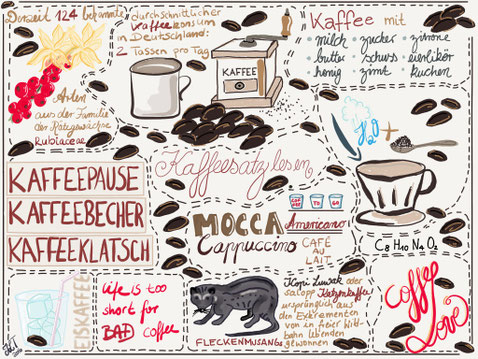 Derzeit 124 bekannte
Arten
aus der Familie
der Rötegewächse
Rubiaceae
durchschnittlicher
Kaffeekonsum
in Deutschland:
2 Tassen pro Tag
KAFFEE
Kaffee mit
• milch • zucker • zitrone
• butter • schuss • eierlikör
• honig • zimt • kuchen
H2O +
C8 H10 N4 O2
Kaffeesatz lesen
KAFFEEPAUSE
KAFFEEBECHER
KAFFEEKLATSCH
MOCCA
COF FEE TO GO
Americano
Cappuccino
CAFÉ
AU
LAIT
EISKAFFEE
life is too
short for
BAD coffee
FLECKENMUSANG
Kopi Luwak oder
salopp Katzenkaffee
ursprünglich aus
den Exkrementen
von in freier Wild-
bahn lebenden
gewonnen
Coffee
Love